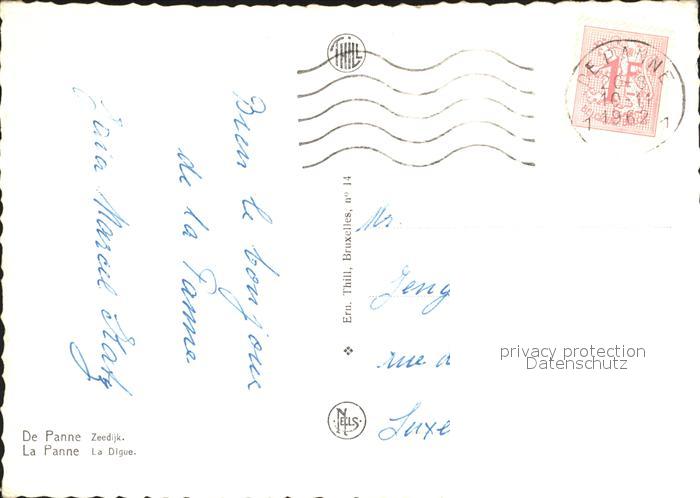 Bien le bonjour
de la Panne
Marcel
THILL
1F
DE PANNE
10-11
1967
1
Ern. Thill, Bruxelles, nº 14
NELS
Mr.
Jeng
rue
Luxe
privacy protection
Datenschutz
De Panne Zeedijk.
La Panne La Digue.